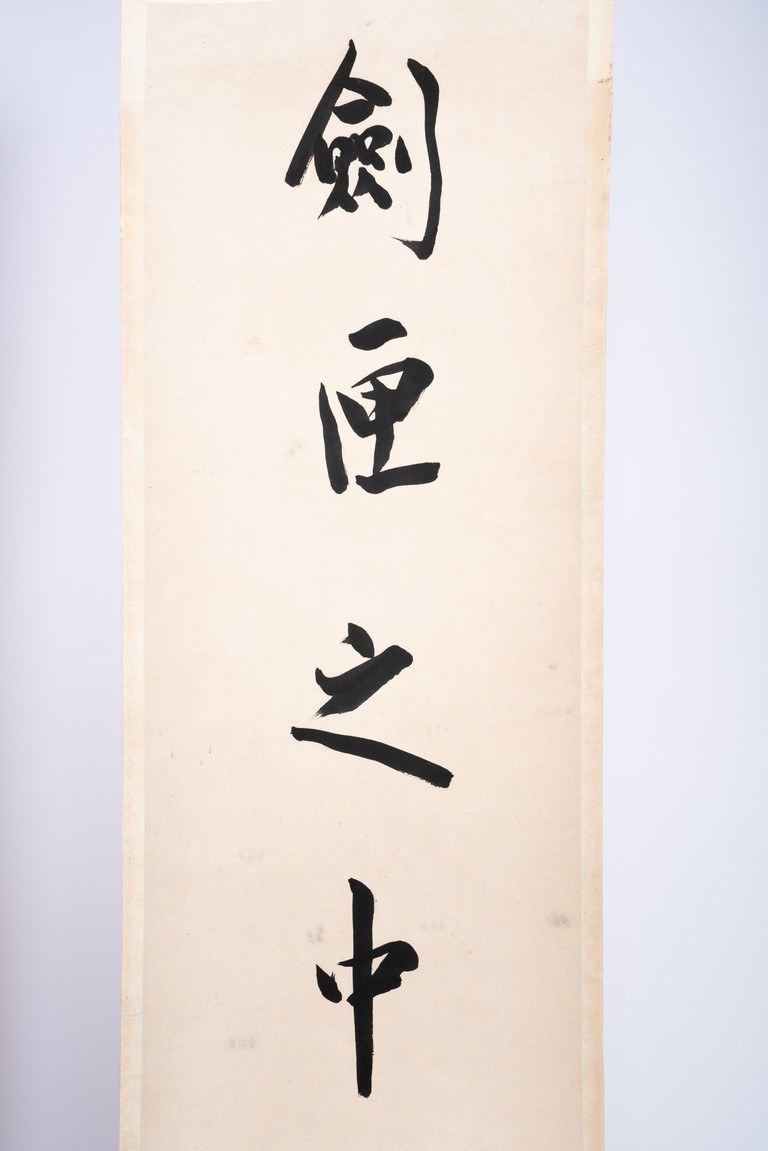 劍匣之中